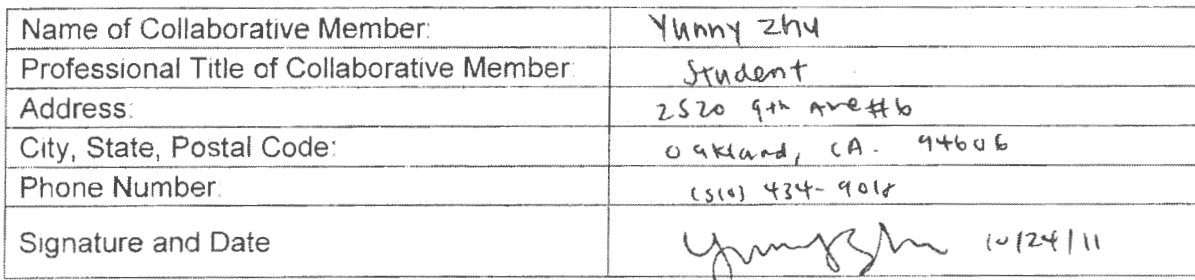 Name of Collaborative Member: Yunny Zhu
Professional Title of Collaborative Member: Student
Address: 2520 9th Ave #6
City, State, Postal Code: Oakland, CA. 94606
Phone Number: (510) 434-9018
Signature and Date 10/24/11